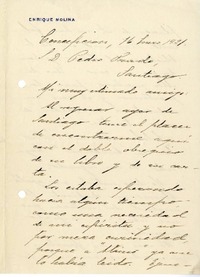 ENRIQUE MOLINA
Concepcion, 16 Enero 1921.
S. D. Pedro Prado,
Santiago
Mi muy estimado amigo:
Al regresar ayer de
Santiago tuve el placer
de encontrarme aquí
con el doble obsequio
de su libro y de su car-
ta.
Los estaba esperando
hacia algun tiempo
como una necesidad
de mi espíritu y no
por mera curiosidad,
porque a
lo había leido.